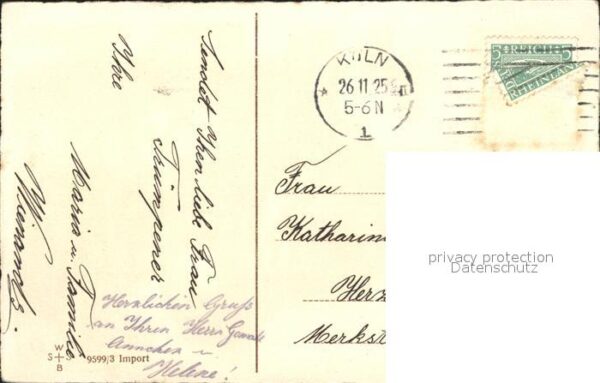 Sendet Ihnen liebe Frau
Trümpener
Ihre
Maria u. Familie
Wienands.
Herzlichen Gruß
an Ihren Herrn
Annchen u
Helene!
W
S + B
9599/3 Import
KÖLN
* 26 11 25
5-6 N
1
5 REICH 5
RHEINLAN
Frau
Katharin
Herz
Merkst
privacy protection
Datenschutz